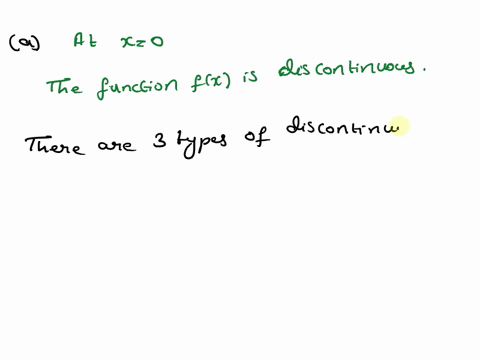 (a) At x=0
The function f(x) is discontinuous.
There are 3 types of discontinu